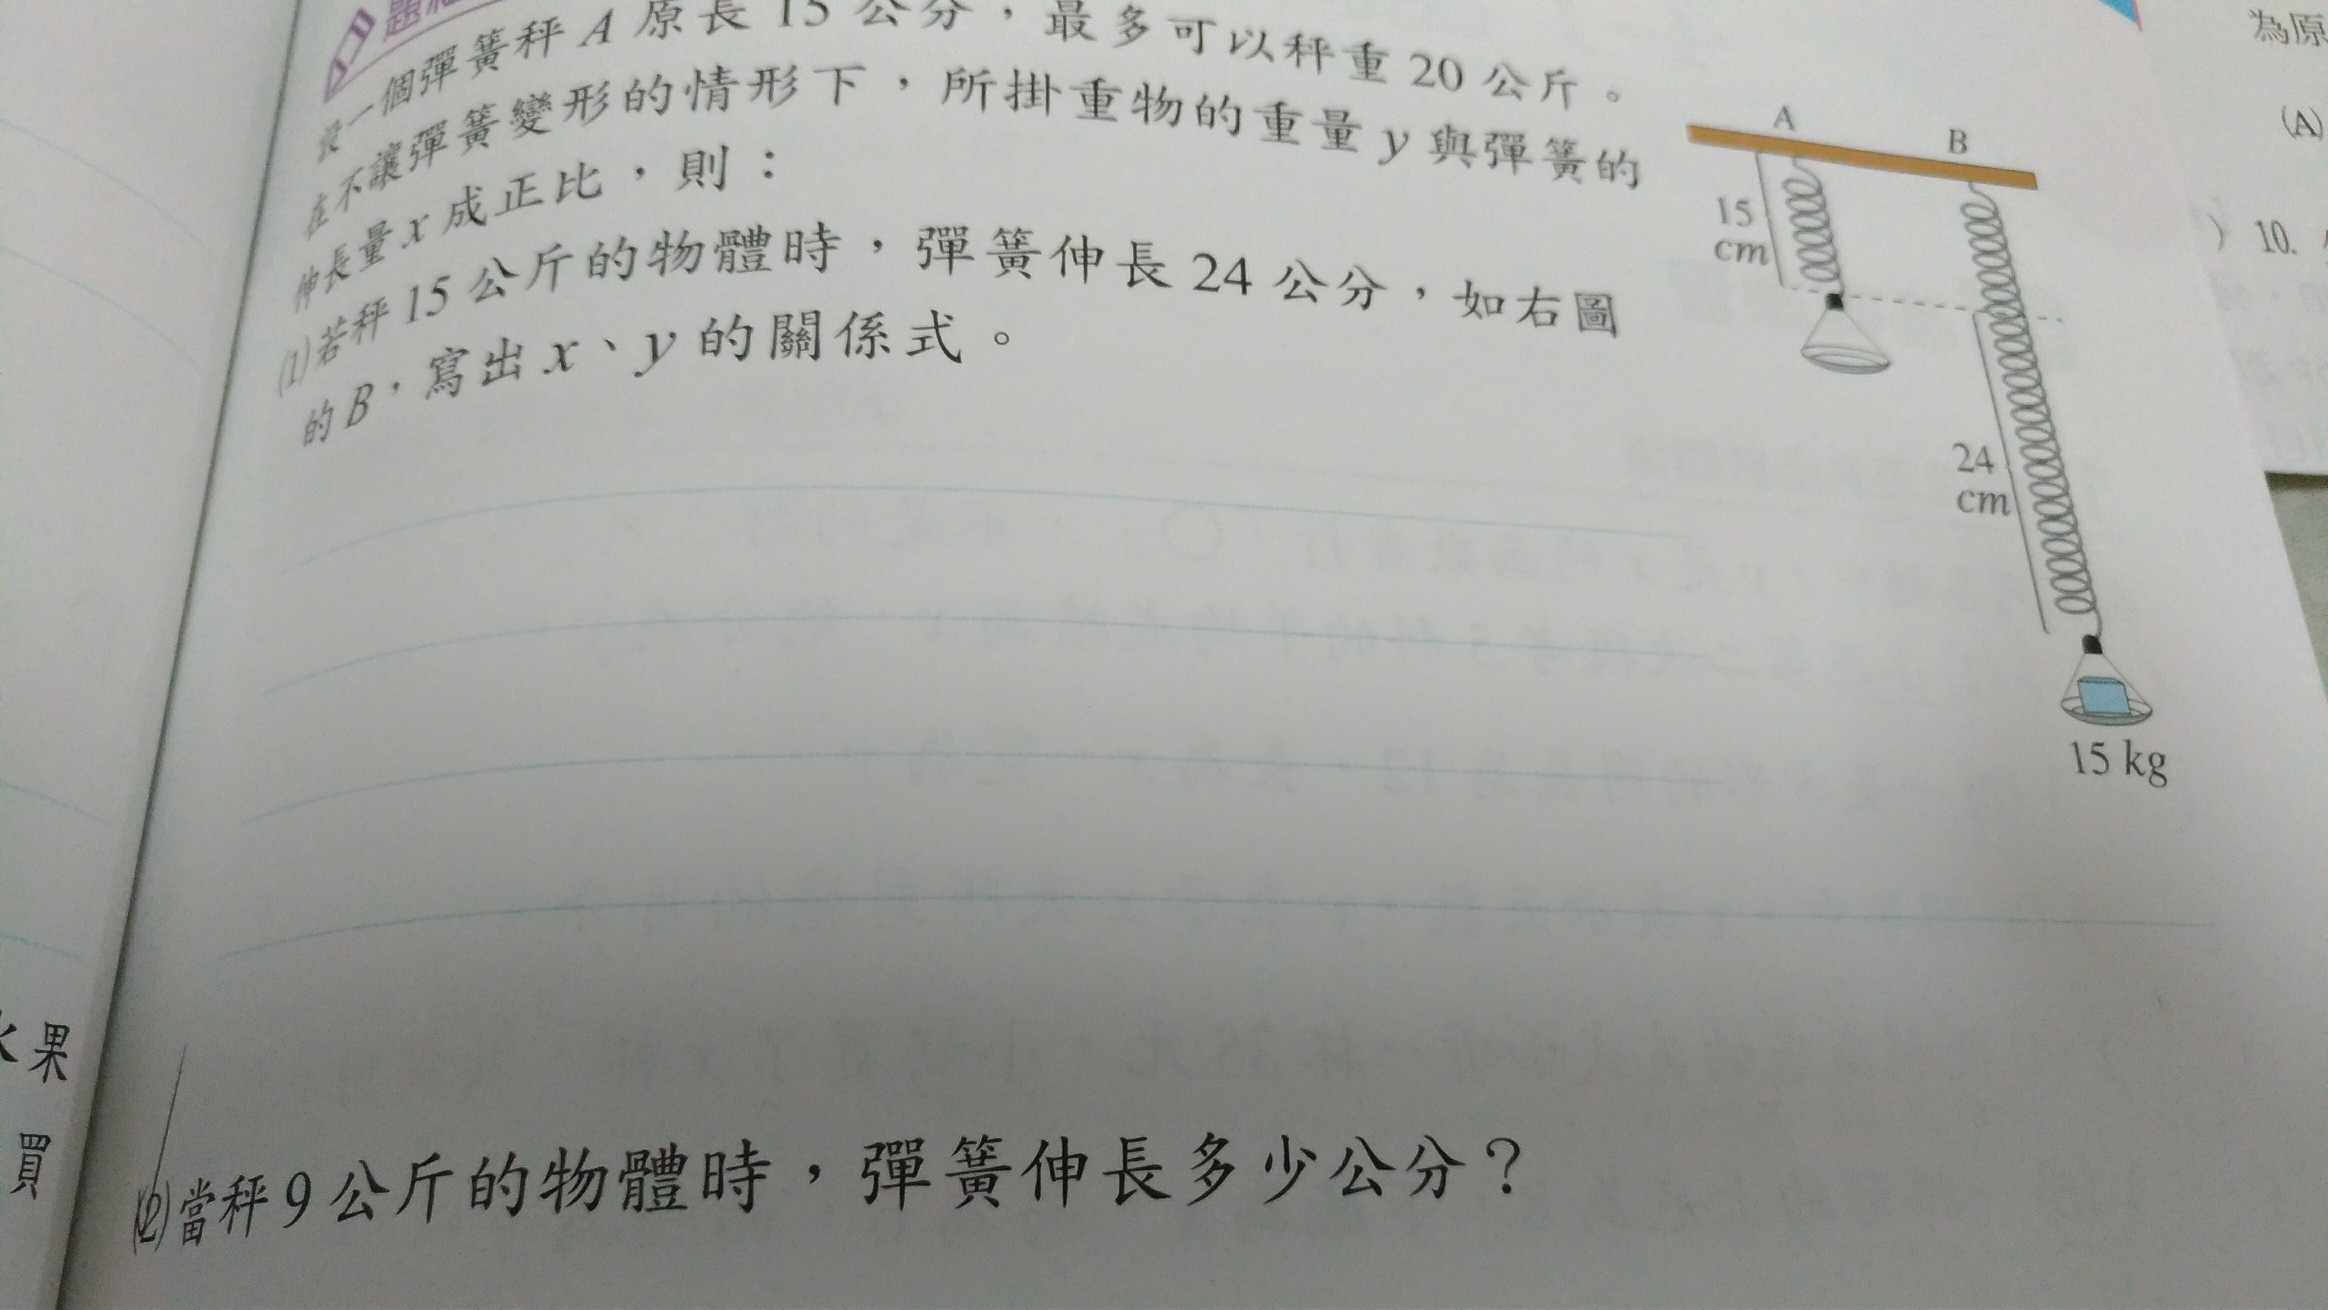 設一個彈簧秤 A 原長 15 公分，最多可以秤重 20 公斤。
在不讓彈簧變形的情形下，所掛重物的重量 y 與彈簧的
伸長量 x 成正比，則：
(1)若秤 15 公斤的物體時，彈簧伸長 24 公分，如右圖
的 B，寫出 x、y 的關係式。
A
B
15
cm
24
cm
15 kg
(2)當秤 9 公斤的物體時，彈簧伸長多少公分？
果
買
為原
(A)
) 10.